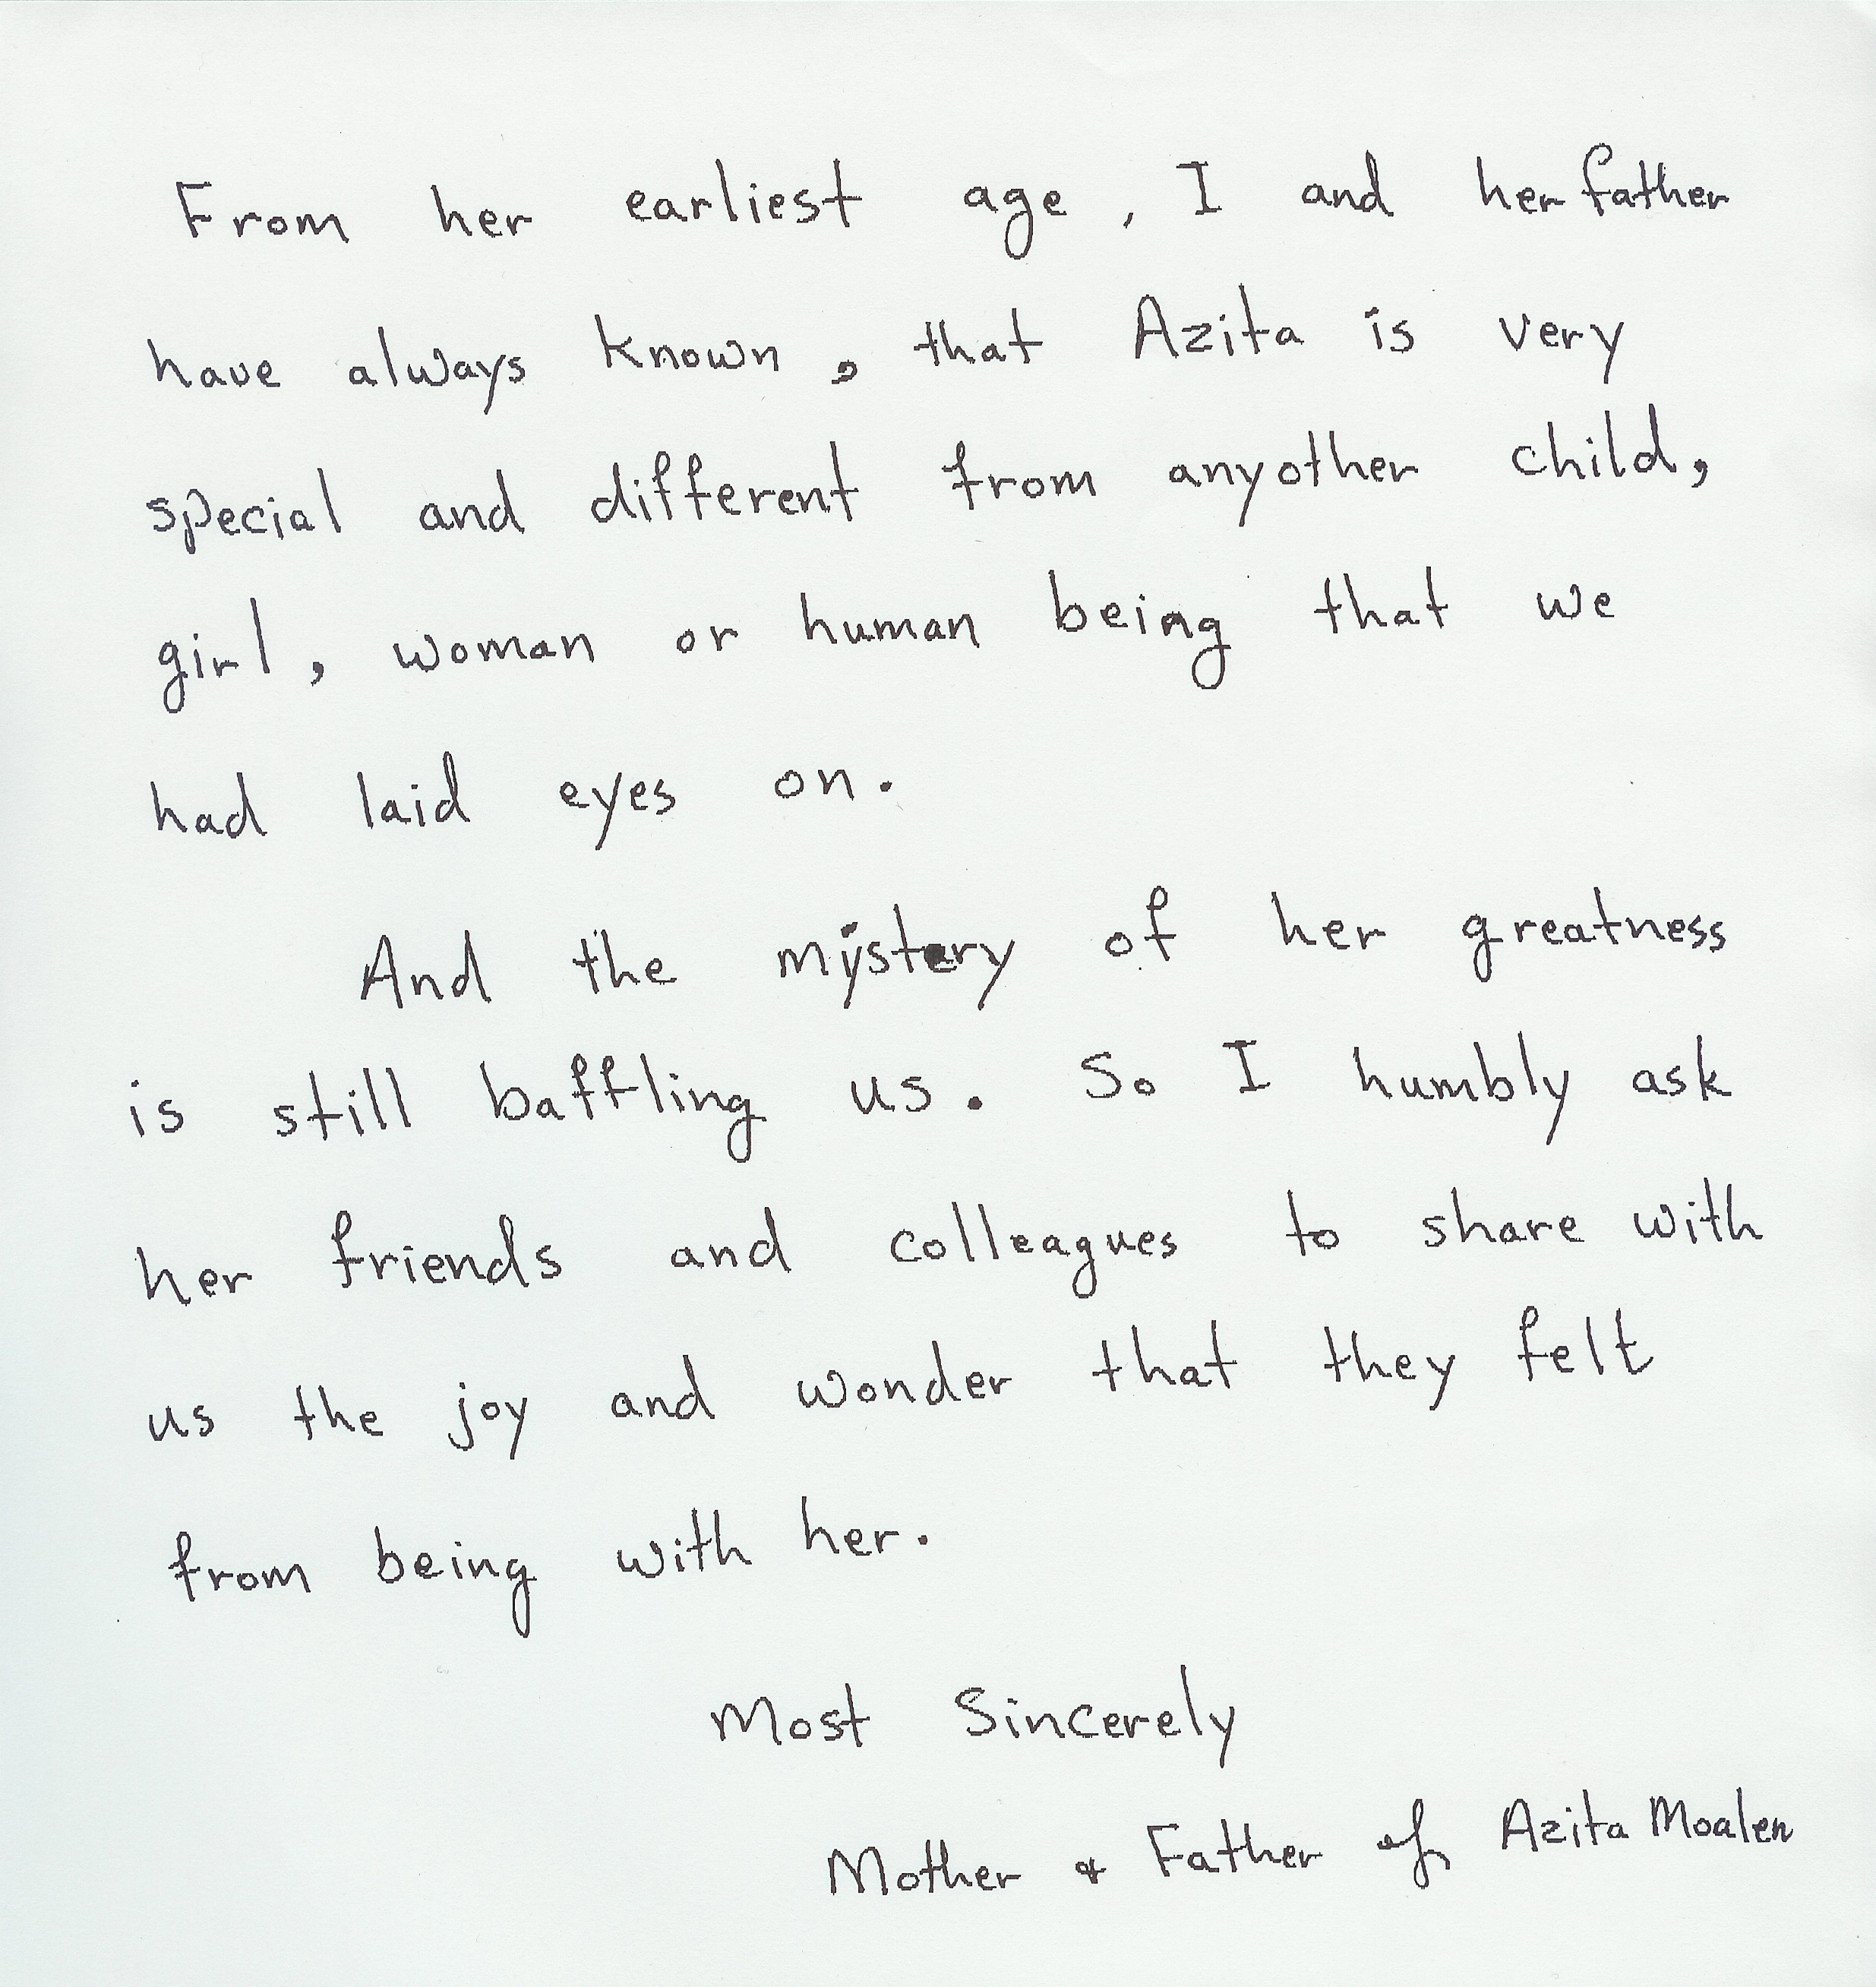 From her earliest age, I and her father
have always known, that Azita is very
special and different from anyother child,
girl, woman or human being that we
had laid eyes on.
And the mystery of her greatness
is still baffling us. So I humbly ask
her friends and colleagues to share with
us the joy and wonder that they felt
from being with her.
Most Sincerely
Mother & Father of Azita Moalen